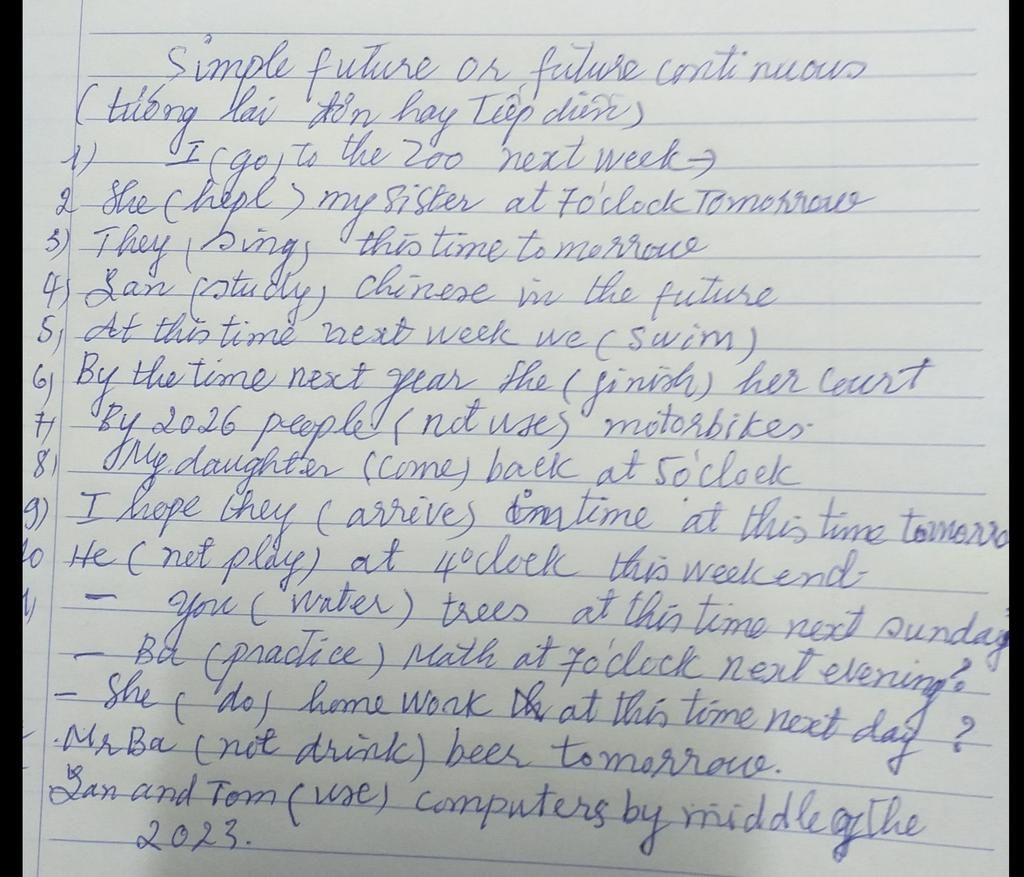 Simple future or future continuous
(tương lai đơn hay Tiếp diễn)
1) I (go) to the zoo next week →
2 She (hepl) my sister at 7o'clock Tomorrow
3) They (sing) this time tomorrow
4) Lan (study) chinese in the future
5) At this time next week we (swim)
6) By the time next year she (finish) her court
7) By 2026 people (not use) motorbikes.
8) My daughter (come) back at 5o'clock
9) I hope they (arrive) time at this time tomorro
10 He (not play) at 4o'clock this weekend.
1) - you (water) trees at this time next sunday
- Ba (practice) Math at 7o'clock next evening?
- She (do) home work at this time next day ?
- Mr Ba (not drink) beer tomorrow.
Lan and Tom (use) computers by middle of the
2023.